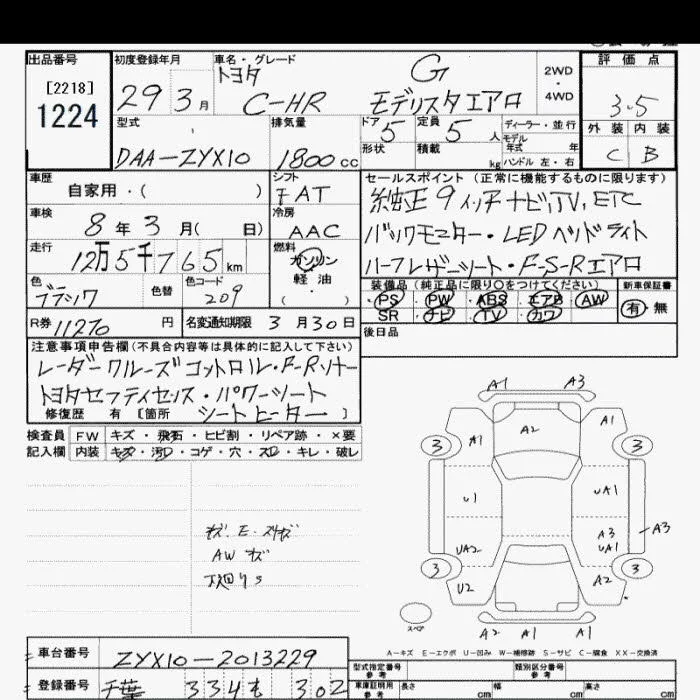 出品番号 初度登録年月 車名・グレード 評価点
[2218] トヨタ G 2WD
1224 29 3月 C-HR モデリスタエアロ 4WD 3.5
型式 排気量 ドア 5 定員 5人 ディーラー・並行 外装 内装
DAA-ZYX10 1800cc 形状 積載 kg モデル年式 年 ハンドル 左・右 C B
車歴 シフト セールスポイント (正常に機能するものに限ります)
自家用・( ) FAT 純正9インチナビ,TV,ETC
車検 冷房
8年3月( 日) AAC バックモニター・LEDヘッドライト
走行 燃料
12万5千765km ガソリン ハーフレザーシート・F-S-Rエアロ
色 色替 色コード 軽油 装備品(純正品に限り○をつけてください) 新車保証書
ブラック 209 ( ) PS・PW・ABS・エアB・AW 有・無
SR ナビ TV カワ
R券 11270円 名変通知期限 3月30日 後日品
注意事項申告欄(不具合内容等は具体的に記入して下さい)
レーダークルーズコントロル・F-Rソナー
トヨタセフティセンス・パワーシート
修復歴 有 [箇所 シートヒーター ]
検査員 FW キズ・飛石・ヒビ割・リペア跡・×要
記入欄 内装 キズ・汚れ・コゲ・穴・スレ・キレ・破レ
A1 A3
A1 A2 A1
3 3
U1 UA1
A3 A3
UA2 UA1
3 3
U2 A2
A2 A1 A1
スペア
AW キズ
下廻りS
A-キズ E-エクボ U-凹み W-補修跡 S-サビ C-腐食 XX-交換済
車台番号 ZYX10-2013229 型式指定番号 参考 類別区分番号 参考
登録番号 千葉 334 も 302 車庫証明用 参考 長さ cm 幅 cm 高さ cm